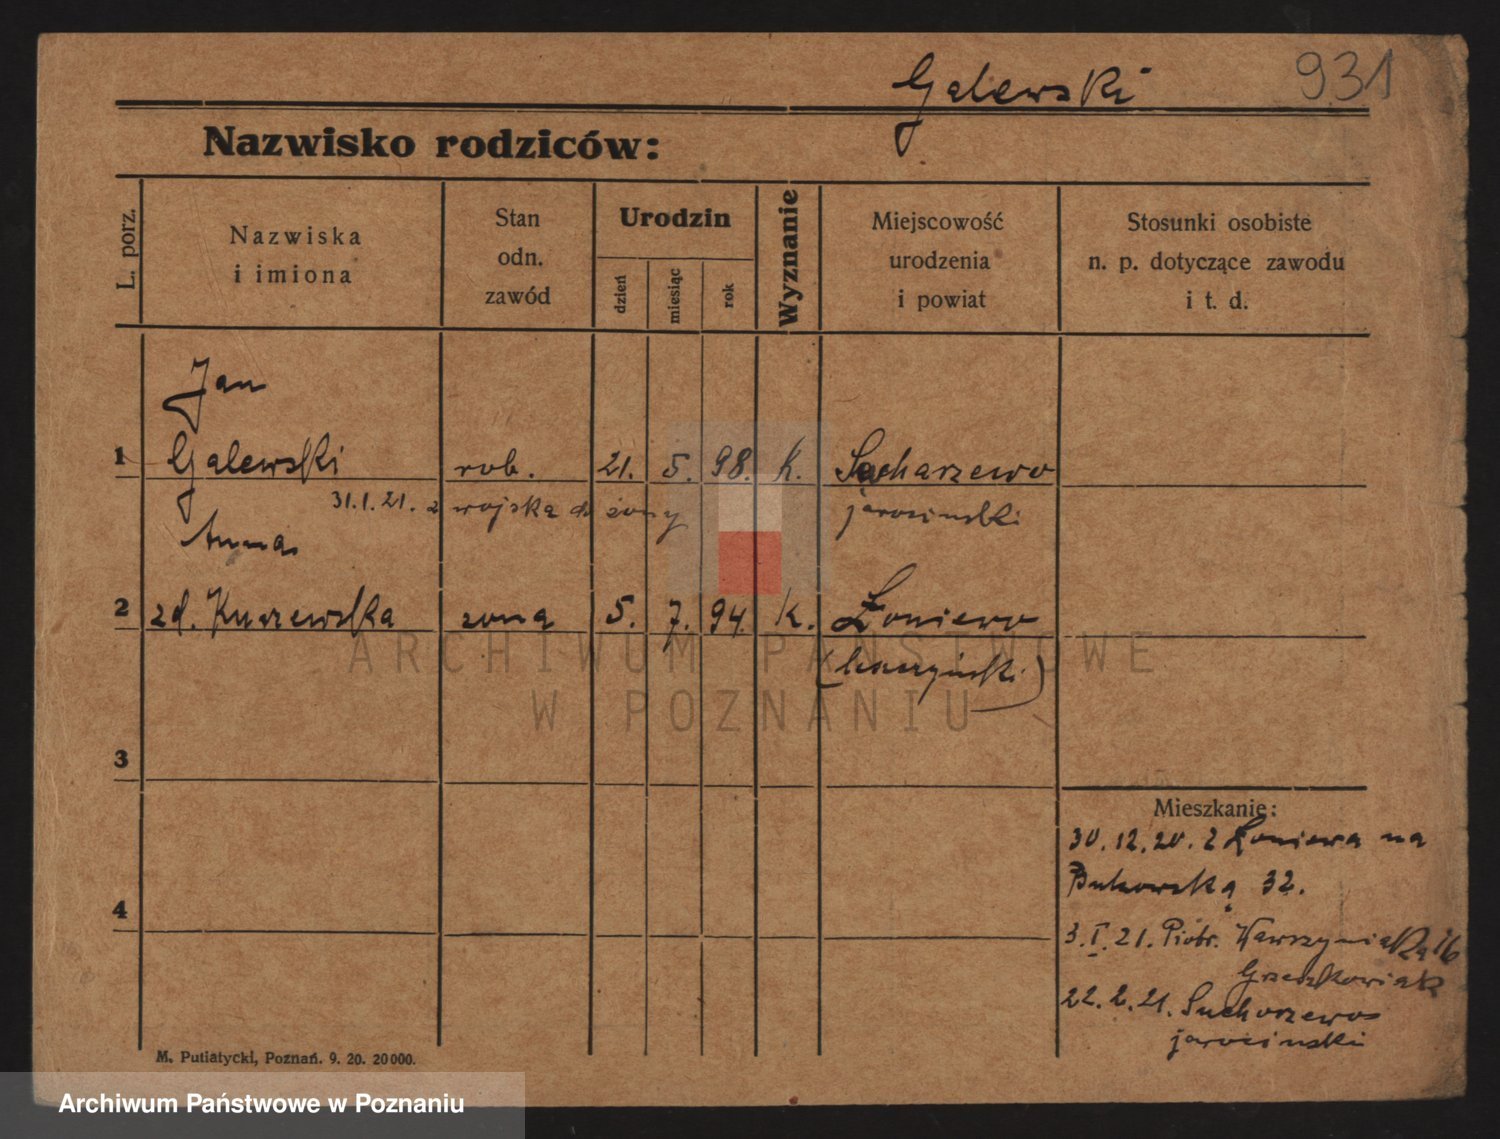 Galewski 931
Nazwisko rodziców:
L. porz.
Nazwiska
i imiona
Stan
odn.
zawód
Urodzin
dzień
miesiąc
rok
Wyznanie
Miejscowość
urodzenia
i powiat
Stosunki osobiste
n. p. dotyczące zawodu
i t. d.
Jan
1 Galewski rob. 21. 5. 98. k. Sucharzewo
31.1.21. z wojska do żony jarociński
Anna
2 zd. Kuszewska żona 5. 7. 94. k. Łoniewo
3
Mieszkanie:
30.12.20. z Łoniewa na
Bukowską 32.
4
3.I.21. Piotr. Wawrzyniaka 16
Grzeszkowiak
22.2.21. Suchorzewo
jarociński
M. Putiatycki, Poznań. 9. 20. 20000.
ARCHIWUM PAŃSTWOWE
W POZNANIU
Archiwum Państwowe w Poznaniu